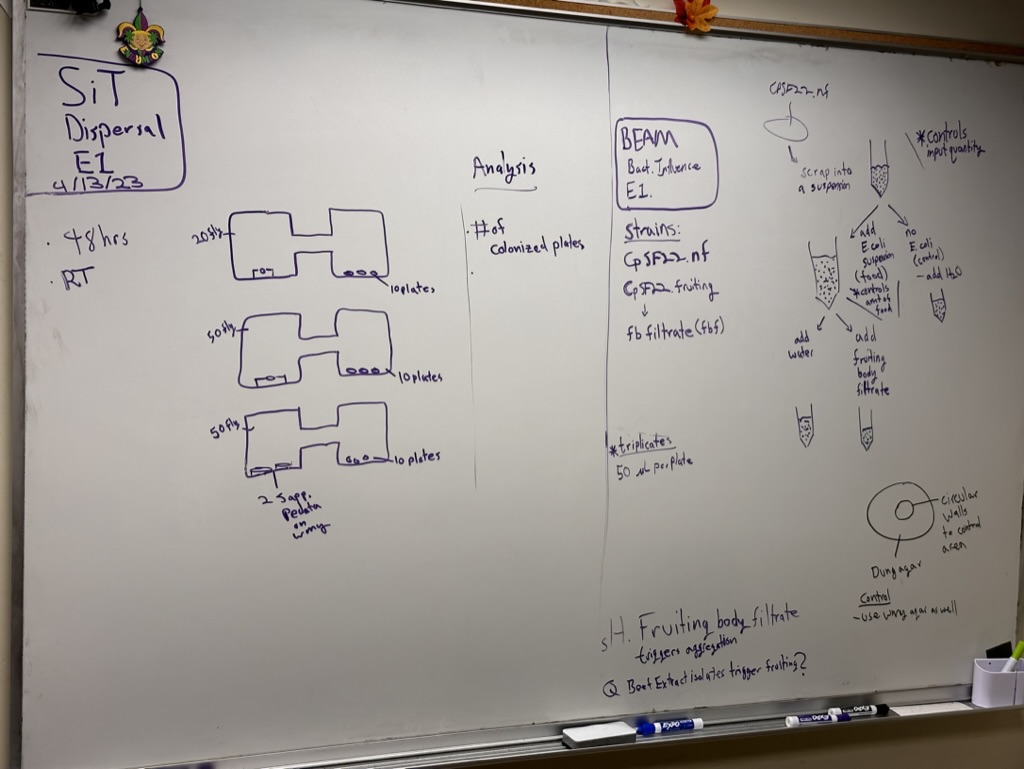 SiT
Dispersal
E1
4/13/23
· 48hrs
· RT
20 fly
10 plates
50 fly
10 plates
50 fly
10 plates
2 5 app.
on
wmy
Analysis
· # of
colonized plates
·
BEAM
Bact. Influence
E1.
Strains:
CpSF22.nf
CpSF22.fruiting
↓
fb filtrate (fbf)
*triplicates
50 uL per plate
CPSF22.nf
scrap into
a suspension
*controls
input quantity
add
E.coli
suspension
(food)
*controls
amt of
food
no
E.coli
(control)
- add H2O
add
water
add
fruiting
body
filtrate
circular
walls
to control
area
Dung agar
Control
- use wmy agar as well
sH. Fruiting body filtrate
triggers aggregation
Q Bact Extract isolates trigger fruiting?
EXPO
EXPO
EXPO